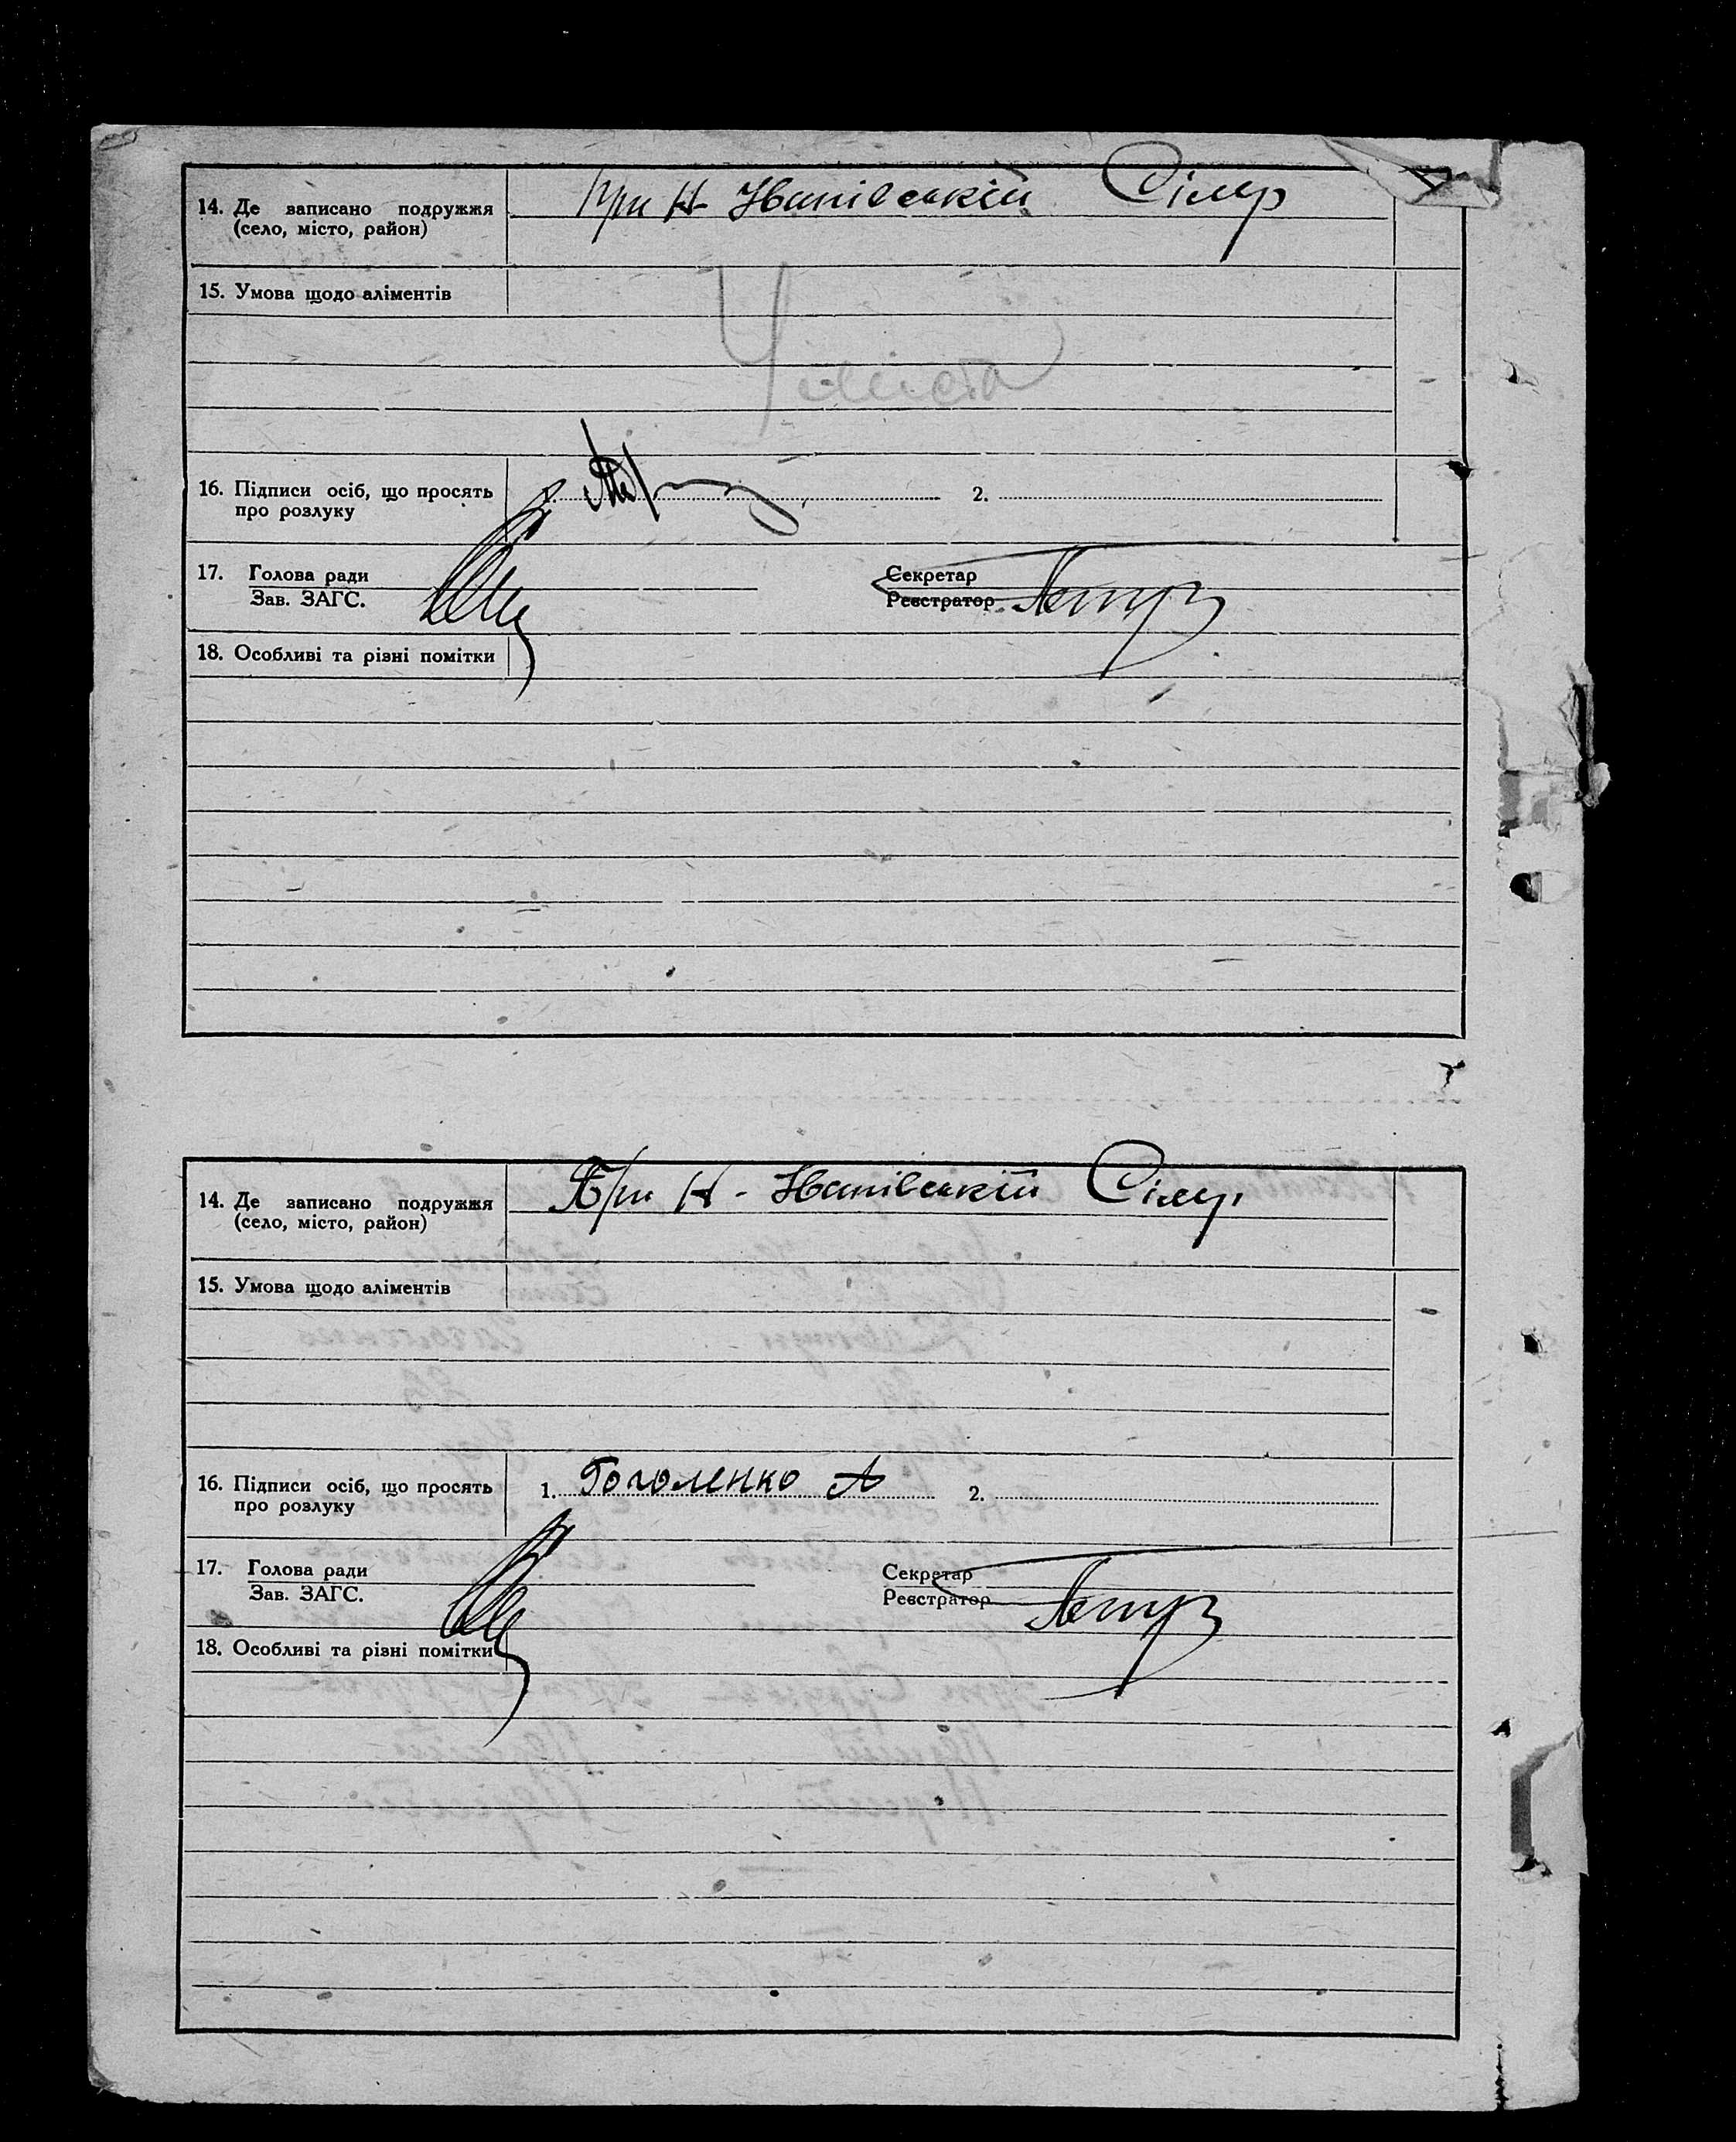 14. Де записано подружжя
(село, місто, район)
При Н-Іванівській Сілер
15. Умова щодо аліментів
16. Підписи осіб, що просять
про розлуку
1. 2.
17. Голова ради
Зав. ЗАГС.
Секретар
Реєстратор
18. Особливі та різні помітки
14. Де записано подружжя
(село, місто, район)
При Н-Іванівській
15. Умова щодо аліментів
16. Підписи осіб, що просять
про розлуку
1. Гоголенко А 2.
17. Голова ради
Зав. ЗАГС.
Секретар
Реєстратор
18. Особливі та різні помітки